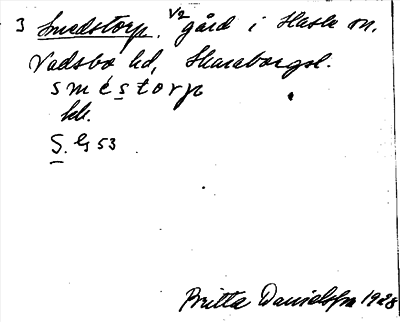 3 Smedstorp. 1/2 gård i Hasle sn.
Vadsbo hd, Skaraborgsl.
s m é s t o r p
kk.
S. G 53
Britta Danielson 1928